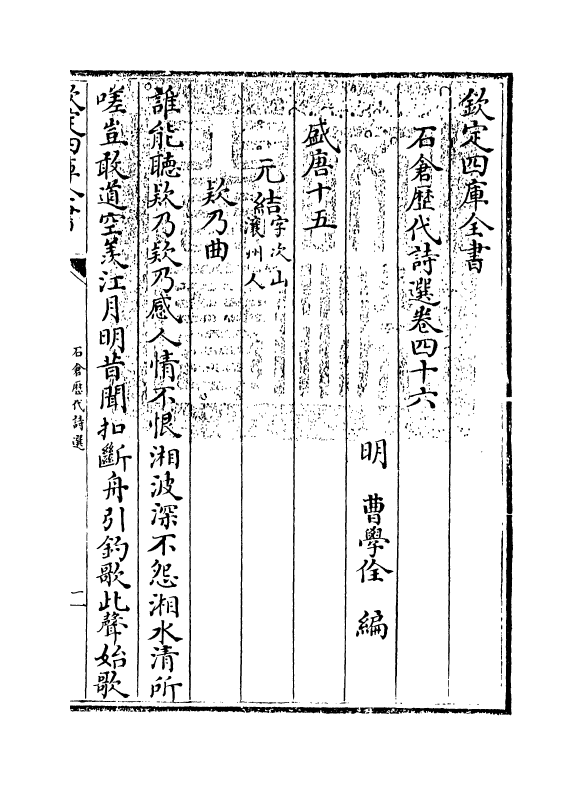 欽定四庫全書
石倉歷代詩選卷四十六
明 曹學佺 編
盛唐十五
元結字次山瀼州人
欵乃曲
誰能聽欵乃欵乃感人情不恨湘波深不怨湘水清所
嗟豈敢道空羡江月明昔聞扣斷舟引釣歌此聲始歌
欽定四庫全書
石倉歷代詩選